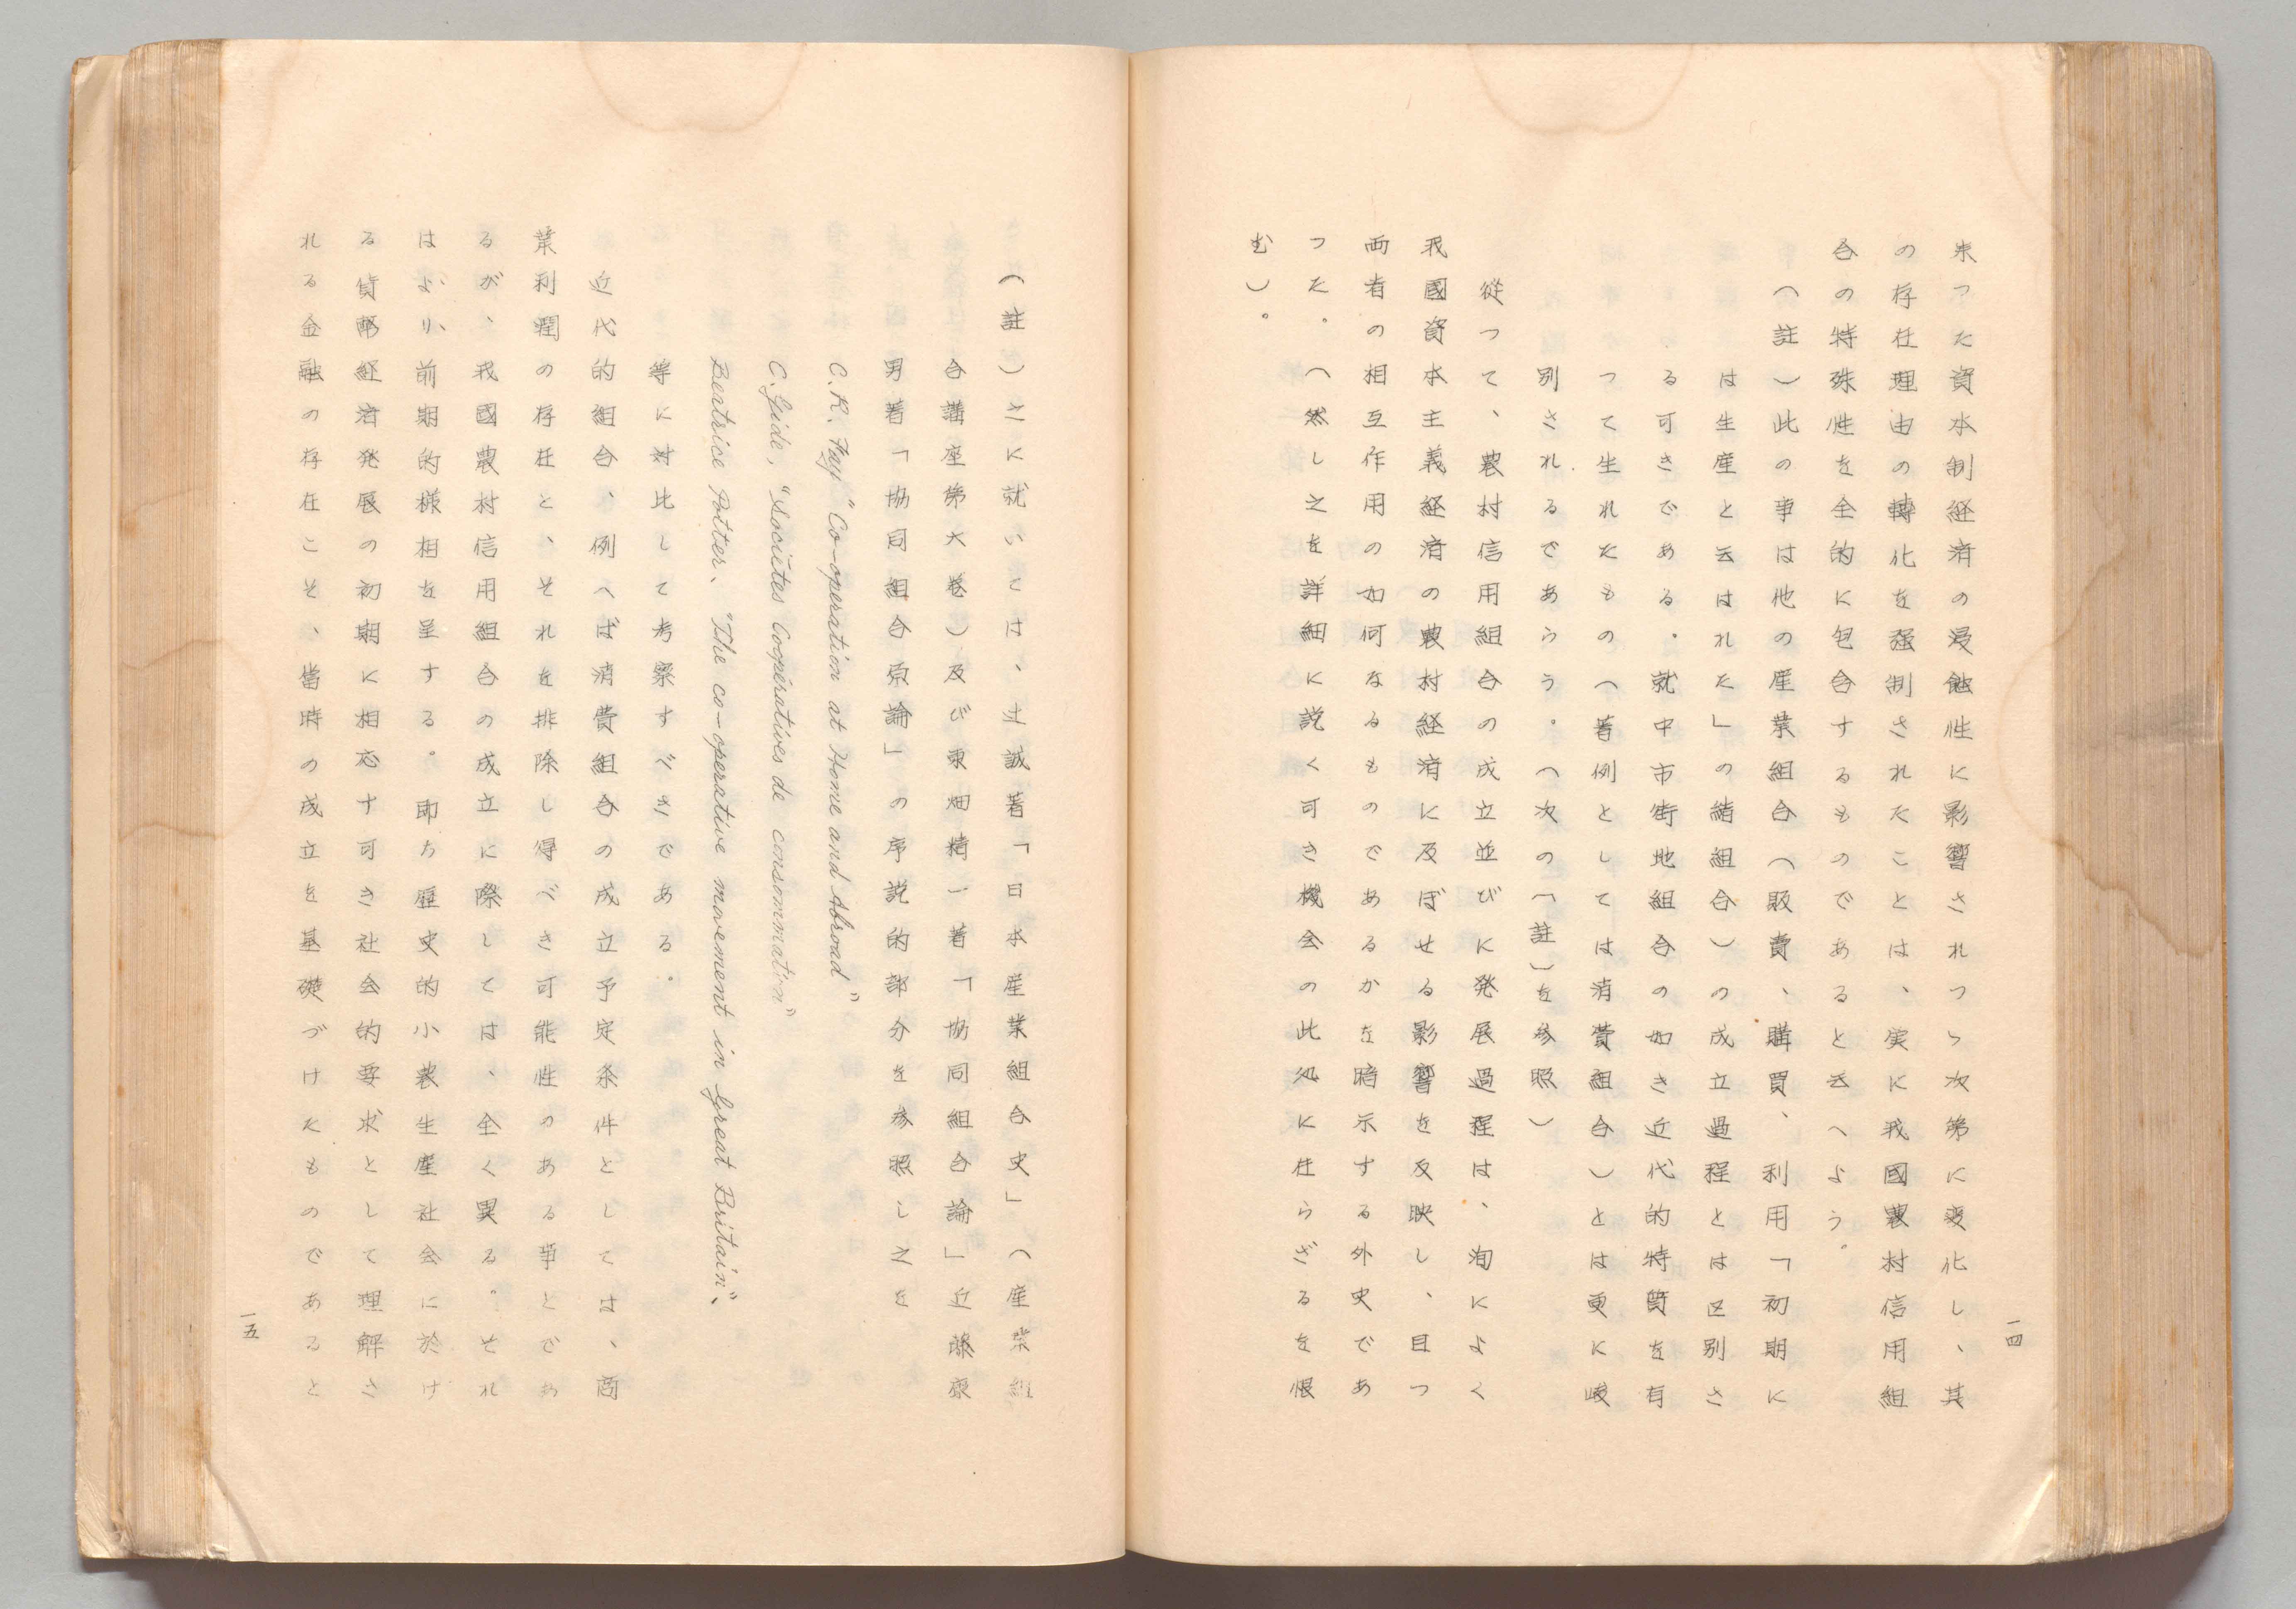 来つた資本制経済の浸蝕性に影響されつゝ次第に変化し、其
の存在理由の轉化を强制されたことは、実に我國農村信用組
合の特殊性を全的に包含するものであると云へよう。
（註）此の事は他の産業組合（販賣、購買、利用「初期に
は生産と云はれた」の諸組合）の成立過程とは区別さ
る可きである。就中市街地組合の如き近代的特質を有
つて生れたもの（著例としては消費組合）とは更に峻
別されるであらう。（次の（註）を参照）
従つて、農村信用組合の成立並びに発展過程は、洵によく
我國資本主義経済の農村経済に及ぼせる影響を反映し、且つ
両者の相互作用の如何なるものであるかを暗示する外史であ
つた。（然し之を詳細に説く可き機会の此処に在らざるを恨
む）。
一四
（註）さに就いては、辻誠著「日本産業組合史」（産業組
合講座第六巻）及び東畑精一著「協同組合論」近藤康
男著「協同組合原論」の序説的部分を参照し之を
C.R. Fay "Co-operation at Home and Abroad"
C. Gide, "Sociétes Coopératives de consommation"
Beatrice Potter, "The co-operative movement in Great Britain",
等に対比して考察すべきである。
近代的組合、例へば消費組合の成立予定条件としては、商
業利潤の存在と、それを排除し得べき可能性のある事とであ
るが、我國農村信用組合の成立に際しては、全く異る。それ
はより前期的様相を呈する。即ち歴史的小農生産社会に於け
る貨幣経済発展の初期に相応す可き社会的要求として理解さ
れる金融の存在こそ、当時の成立を基礎づけたものであると
一五